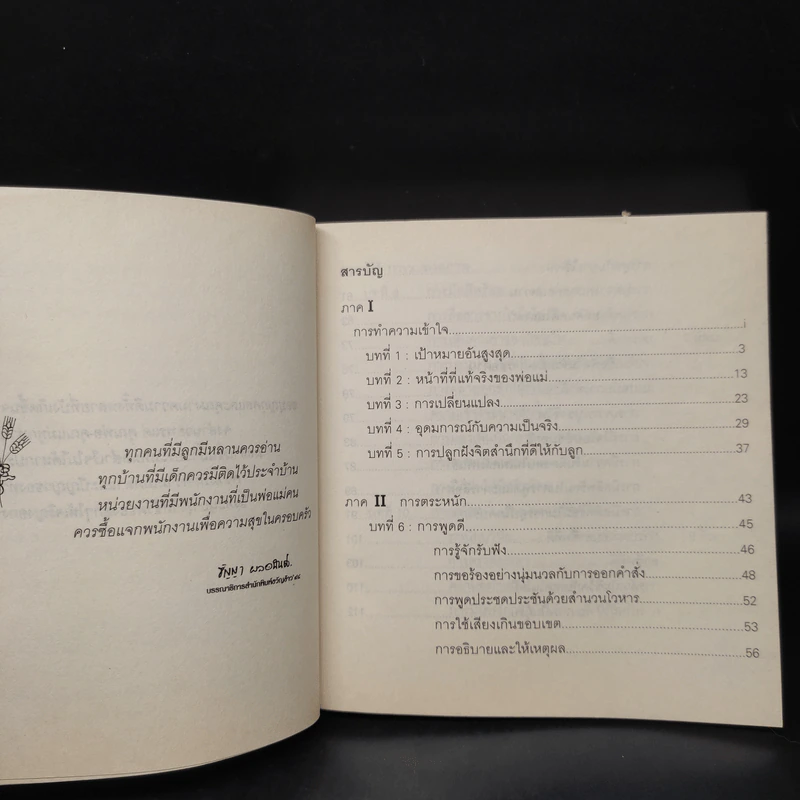 ทุกคนที่มีลูกมีหลานควรอ่าน
ทุกบ้านที่มีเด็กควรมีติดไว้ประจำบ้าน
หน่วยงานที่มีพนักงานที่เป็นพ่อแม่คน
ควรซื้อแจกพนักงานเพื่อความสุขในครอบครัว
บรรณาธิการสำนักพิมพ์ขวัญข้าว'๙๔
สารบัญ
ภาค I
การทำความเข้าใจ...i
บทที่ 1 : เป้าหมายอันสูงสุด...3
บทที่ 2 : หน้าที่ที่แท้จริงของพ่อแม่...13
บทที่ 3 : การเปลี่ยนแปลง...23
บทที่ 4 : อุดมการณ์กับความเป็นจริง...29
บทที่ 5 : การปลูกฝังจิตสำนึกที่ดีให้กับลูก...37
ภาค II การตระหนัก...43
บทที่ 6 : การพูดดี...45
การรู้จักรับฟัง...46
การขอร้องอย่างนุ่มนวลกับการออกคำสั่ง...48
การพูดประชดประชันด้วยสำนวนโวหาร...52
การใช้เสียงเกินขอบเขต...53
การอธิบายและให้เหตุผล...56